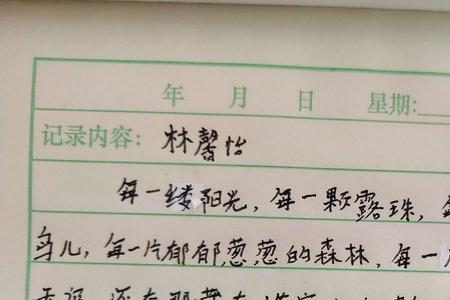 年 月 日 星期:
记录内容: 林馨怡
每一缕阳光,每一颗露珠,
鸟儿,每一片郁郁葱葱的森林,每一